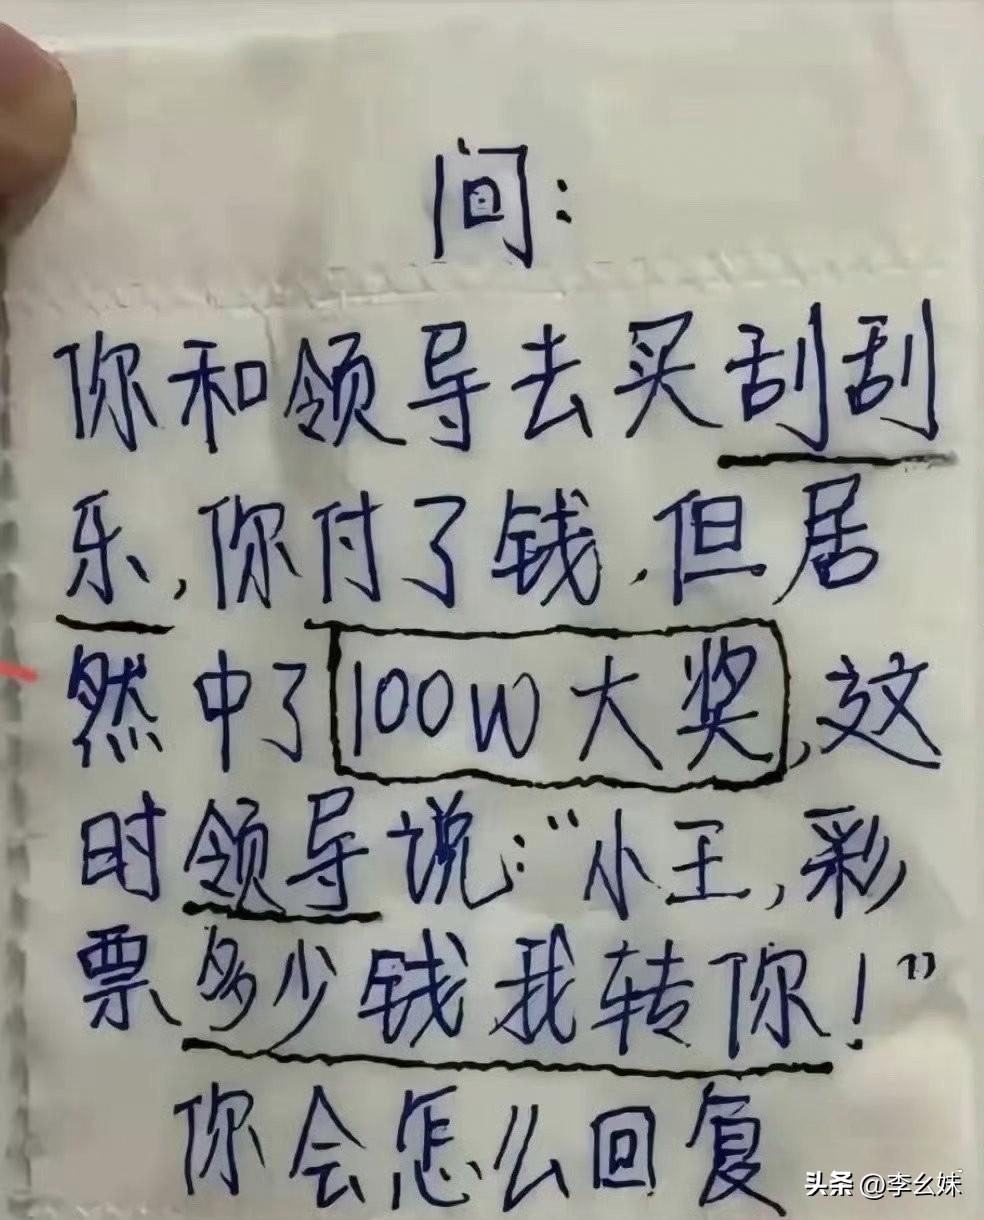 问:
你和领导去买刮刮
乐,你付了钱,但居
然中了100W大奖,这
时领导说:“小王,彩
票多少钱我转你!”
你会怎么回复
头条 @李幺妹